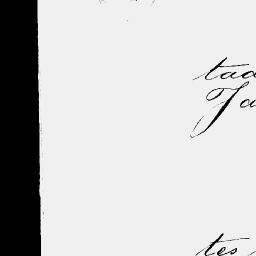 taa
Ja
tes